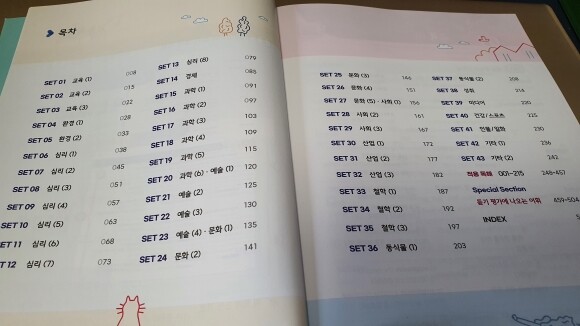 목차
SET 01 교육 (1) 008
SET 02 교육 (2) 015
SET 03 교육 (3) 022
SET 04 환경 (1) 028
SET 05 환경 (2) 033
SET 06 심리 (1) 038
SET 07 심리 (2) 045
SET 08 심리 (3) 051
SET 09 심리 (4) 057
SET 10 심리 (5) 063
SET 11 심리 (6) 068
SET 12 심리 (7) 073
SET 13 심리 (8) 079
SET 14 경제 085
SET 15 과학 (1) 091
SET 16 과학 (2) 097
SET 17 과학 (3) 103
SET 18 과학 (4) 109
SET 19 과학 (5) 115
SET 20 과학 (6)·예술 (1) 120
SET 21 예술 (2) 125
SET 22 예술 (3) 130
SET 23 예술 (4)·문화 (1) 135
SET 24 문화 (2) 141
SET 25 문화 (3) 146
SET 26 문화 (4) 151
SET 27 문화 (5)·사회 (1) 156
SET 28 사회 (2) 161
SET 29 사회 (3) 167
SET 30 산업 (1) 172
SET 31 산업 (2) 177
SET 32 산업 (3) 182
SET 33 철학 (1) 187
SET 34 철학 (2) 192
SET 35 철학 (3) 197
SET 36 동식물 (1) 203
SET 37 동식물 (2) 208
SET 38 214
SET 39 미디어 220
SET 40 건강/스포츠 225
SET 41 인물/일화 230
SET 42 기타 (1) 236
SET 43 기타 (2) 242
적용 독해 001-215 248-457
Special Section
듣기 평가에 나오는 어휘 459-504
INDEX